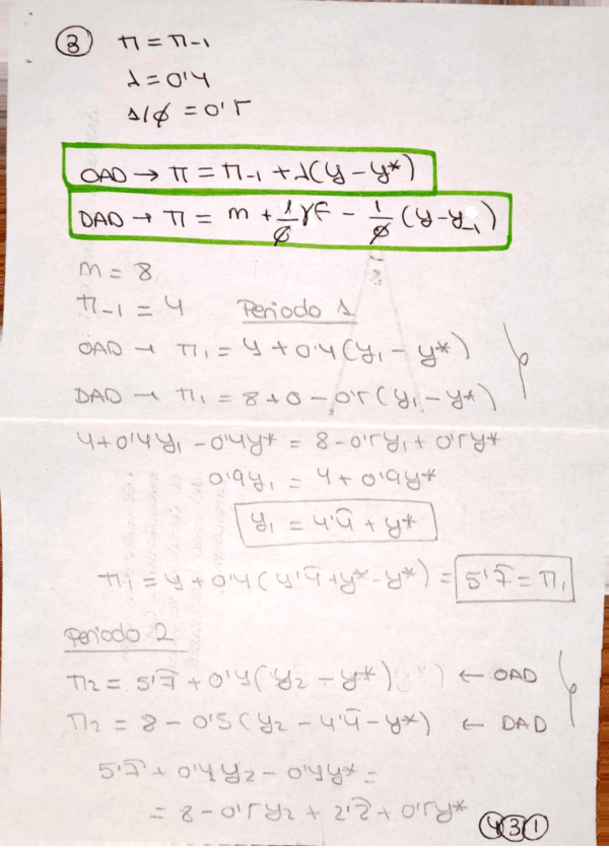 ③ π = π-1
λ = 0'4
1/φ = 0'5
OAD → π = π-1 + λ(y - y*)
DAD → π = m + 1/φ γF - 1/φ (y - y-1)
m = 8
π-1 = 4 Periodo 1
OAD → π1 = 4 + 0'4(y1 - y*)
DAD → π1 = 8 + 0 - 0'5(y1 - y*)
4 + 0'4y1 - 0'4y* = 8 - 0'5y1 + 0'5y*
0'9y1 = 4 + 0'9y*
y1 = 4'4̂ + y*
π1 = 4 + 0'4(4'4̂ + y* - y*) = 5'7̂ = π1
Periodo 2
π2 = 5'7̂ + 0'4(y2 - y*) ← OAD
π2 = 8 - 0'5(y2 - 4'4̂ - y*) ← DAD
5'7̂ + 0'4y2 - 0'4y* =
= 8 - 0'5y2 + 2'2̂ + 0'5y*
④③①